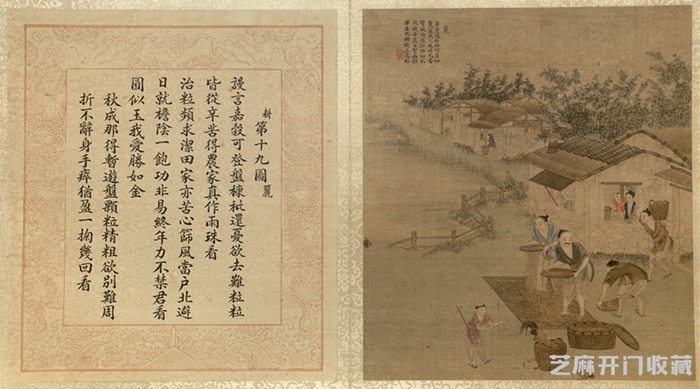 耕 第十九圖 簏
謾言嘉穀可登盤糠秕還憂欲去難粒粒
皆從辛苦得農家真作雨珠看
治粒頻求潔田家亦苦心篩風當户北避
日就檐陰一飽功非易終年力不禁君看
圓似玉我愛勝如金
秋成那得暫遊盤顆粒精粗欲別難周
折不辭身手瘁猶盈一掬幾回看
芝麻开门收藏